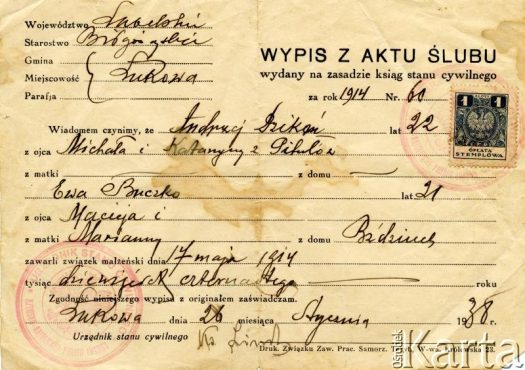 Województwo Lubelski
Starostwo
Gmina
Miejscowość Łukowa
Parafja
WYPIS Z AKTU ŚLUBU
wydany na zasadzie ksiąg stanu cywilnego
za rok 1914 Nr. 60
1 1
OPŁATA
STEMPLOWA
Wiadomem czynimy, że Andrzej lat 22
z ojca Michała i Katarzyny z
z matki z domu
Ewa Buczko lat 21
z ojca Macieja i
z matki Marianny z domu
zawarli związek małżeński dnia 17 maja 1914
tysiąc dziewięset czternastego roku
Zgodność niniejszego wypisu z oryginałem zaświadczam.
Łukowa dnia 26 miesiąca Stycznia 1938 r.
Urzędnik stanu cywilnego Ks.
Druk. Związku Zaw. Prac. Samorz. Teryt. W-wa, Królewska 23.
ośrodek
Karta